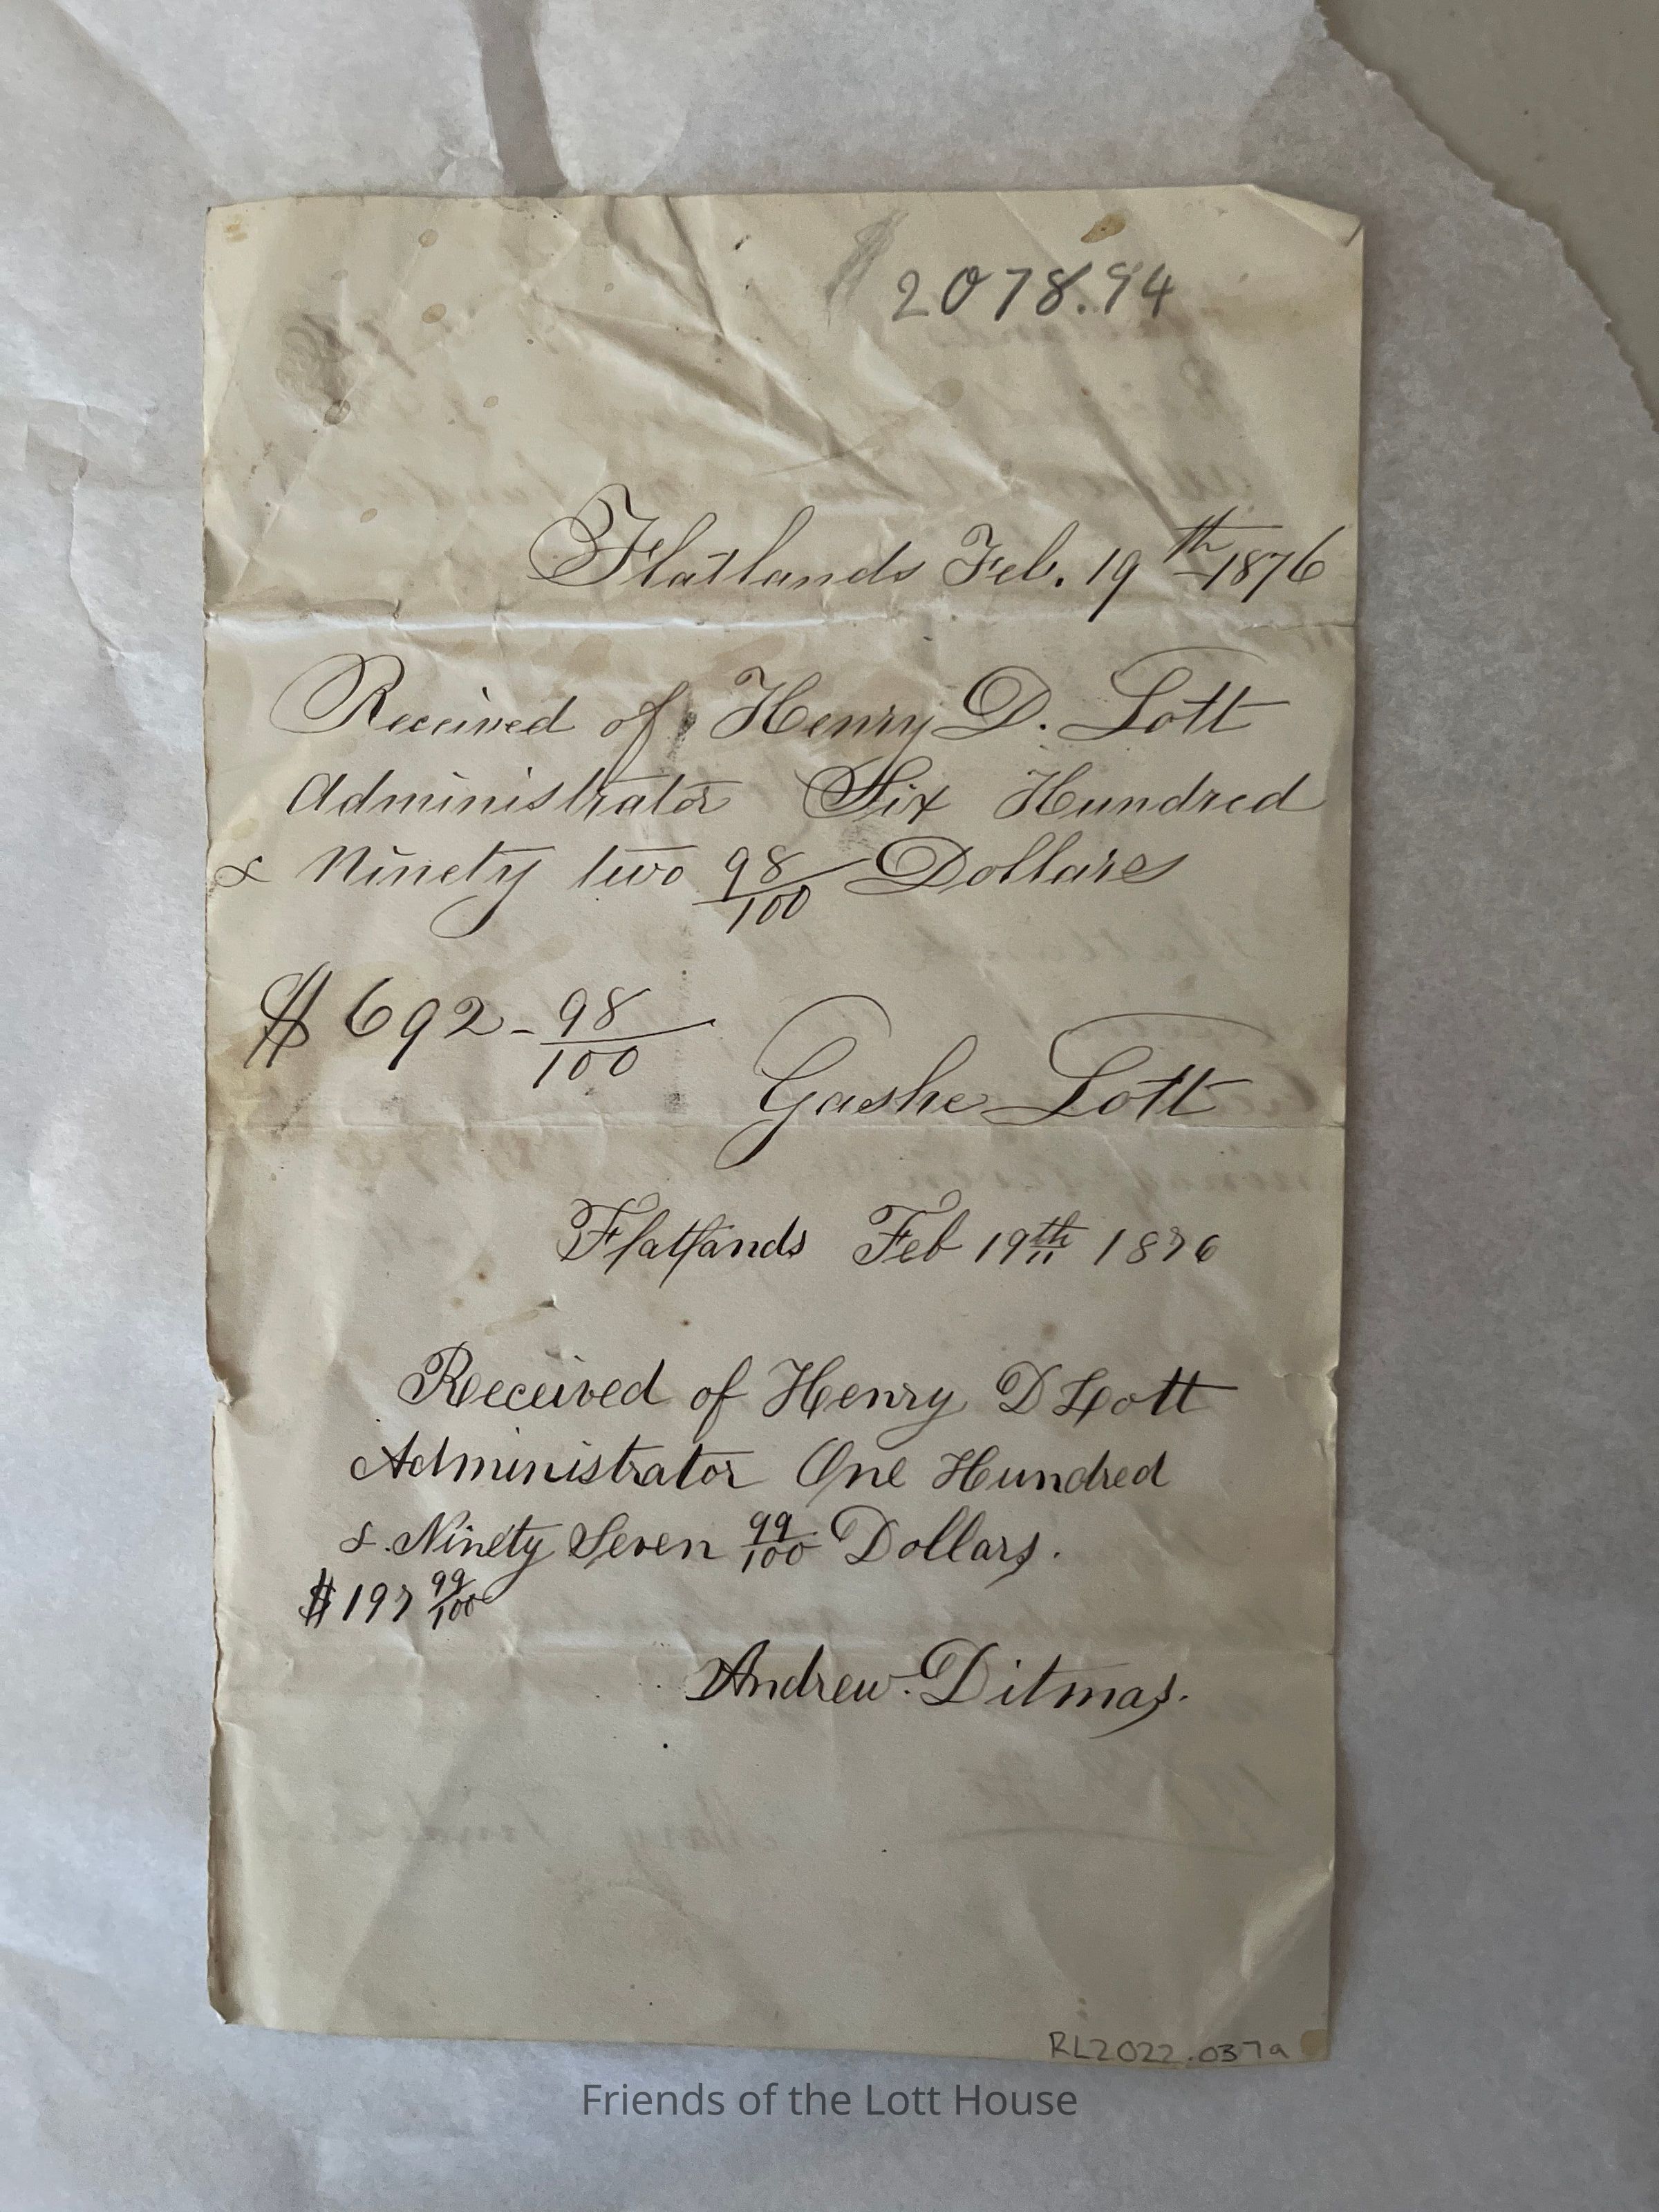 2078.94
Flatlands Feb. 19th 1876
Received of Henry D. Lott
Administrator Six Hundred
& Ninety two 98/100 Dollars
$692-98/100
Gashe Lott
Flatlands Feb 19th 1876
Received of Henry D Lott
Administrator One Hundred
& Ninety Seven 99/100 Dollars.
$197 99/100
Andrew Ditmas.
RL2022.037a
Friends of the Lott House